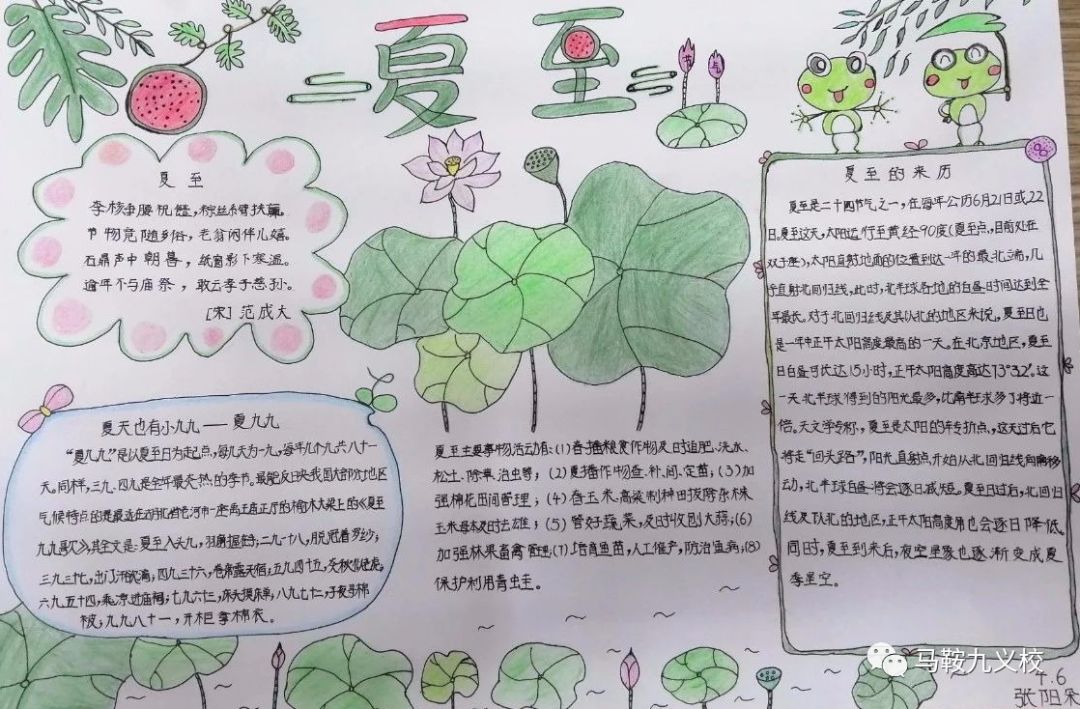 夏至
节气
夏至
李核垂腰祝饐，粽丝系臂扶羸。
节物竞随乡俗，老翁闲伴儿嬉。
石鼎声中朝暮，纸窗影下寒温。
逾年不与庙祭，敢云孝子慈孙。
[宋]范成大
夏至的来历
夏至是二十四节气之一，在每年公历6月21日或22
日。夏至这天，太阳运行至黄经90度（夏至点，目前处在
双子座），太阳直射地面的位置到达一年的最北端，几
乎直射北回归线，此时，北半球各地的白昼时间达到全
年最长。对于北回归线及其以北的地区来说，夏至日也
是一年中正午太阳高度最高的一天。在北京地区，夏至
日白昼可达15小时，正午太阳高度高达73°32′。这
一天北半球得到的阳光最多，比南半球多了将近一
倍。天文学专称，夏至是太阳的转折点，这天过后它
将走“回头路”，阳光直射点开始从北回归线向南移
动，北半球白昼将会逐日减短。夏至日过后，北回归
线及以北的地区，正午太阳高度角也会逐日降低。
同时，夏至到来后，夜空星象也逐渐变成夏
季星空。
夏天也有小九九——夏九九
“夏九九”是以夏至日为起点，每九天为一九，每年九个九共八十一
天。同样，三九、四九是全年最炎热的季节。最能反映我国大部分地区
气候特点的是
九九歌》，其全文是：夏至入头九，羽扇握在手；二九一十八，脱冠着罗纱；
三九二十七，出门汗欲滴；四九三十六，卷席露天宿；五九四十五，炎秋似老虎；
六九五十四，乘凉进庙祠；七九六十三，床头摸床单；八九七十二，子夜寻棉
被；九九八十一，开柜拿棉衣。
夏至主要事物活动有：(1)春播粮食作物及时追肥、浇水、
松土、除草、治虫等；(2)夏播作物查、补、间、定苗；(3)加
强棉花田间管理；(4)春玉米、高粱制种田拔除杂株
玉米母本及时去雄；(5)管好蔬菜，及时收刨大蒜；(6)
加强林果畜禽管理；(7)培育鱼苗，人工催产，防治鱼病；(8)
保护利用青蛙。
马鞍九义校
4.6
张阳